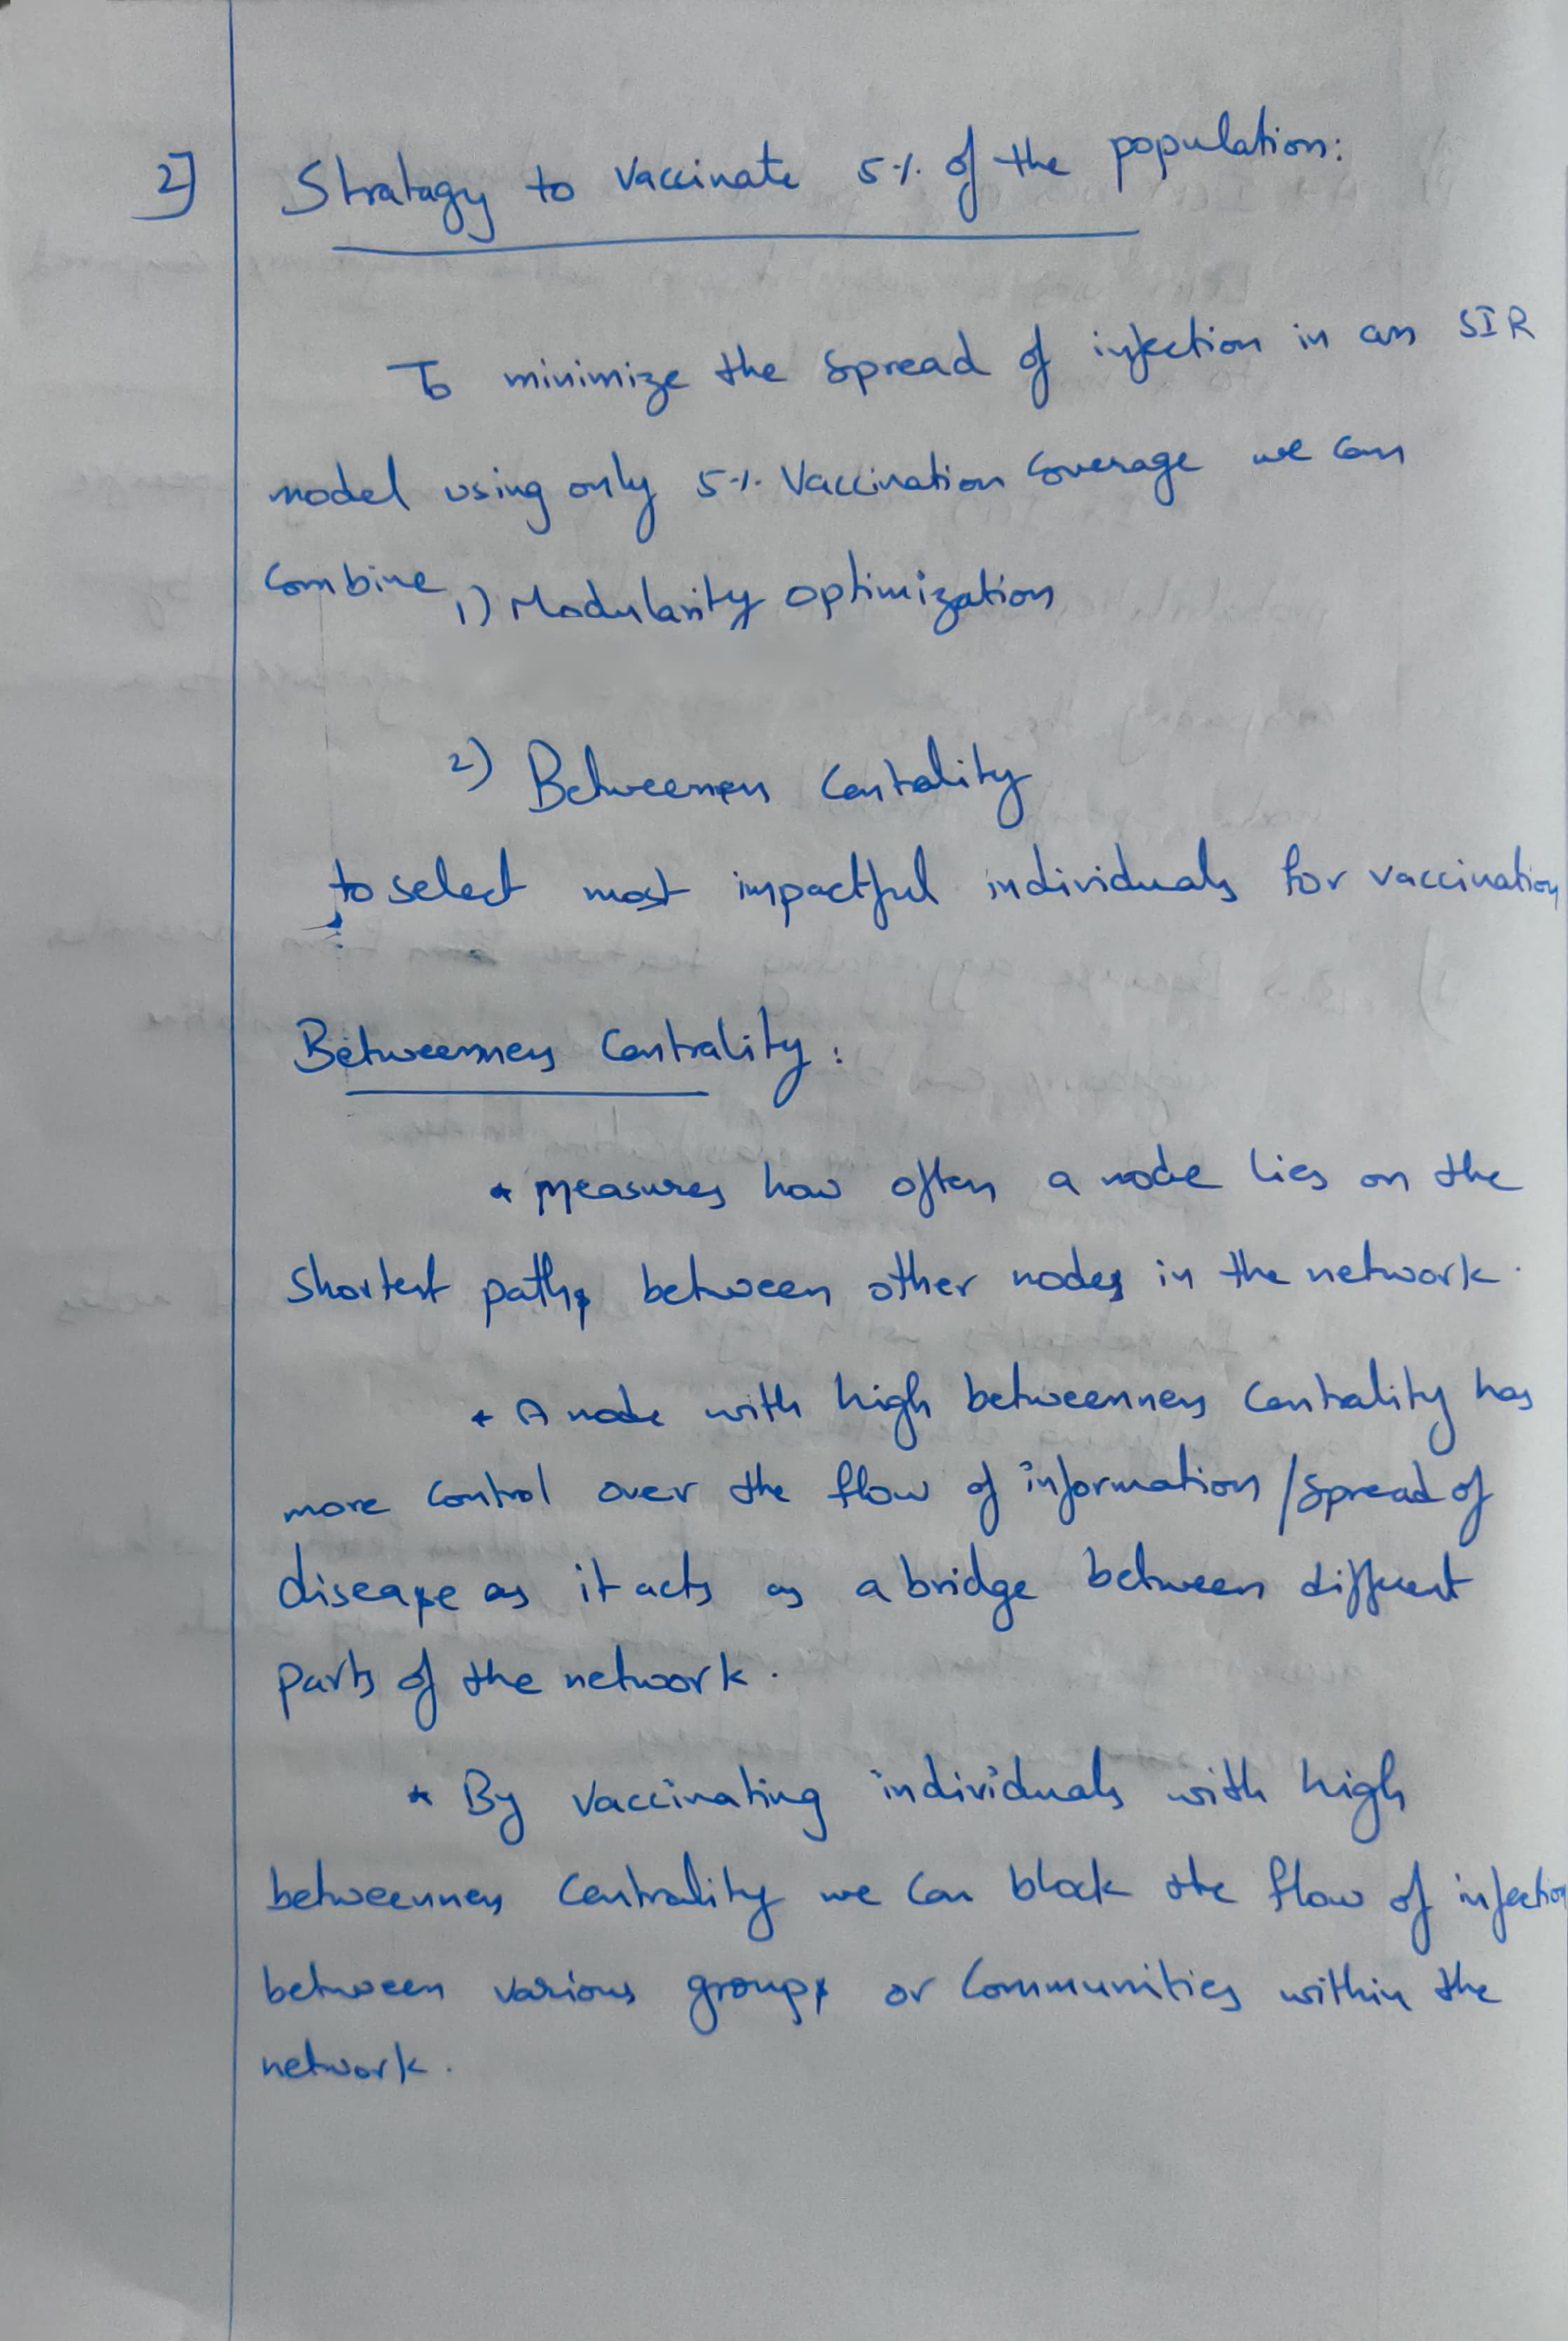 2] Stratagy to Vaccinate 5% of the population:
To minimize the spread of infection in an SIR
model using only 5% Vaccination Coverage we can
Combine 1) Modularity optimization
2) Betweenness Centrality
to select most impactful individuals for vaccination
Betweenness Centrality:
* measures how often a node lies on the
shortest paths between other nodes in the network.
* A node with high betweenness Centrality has
more control over the flow of information/spread of
disease as it acts as a bridge between different
parts of the network.
* By vaccinating individuals with high
betweenness Centrality we can block the flow of infection
between various groups or Communities within the
network.